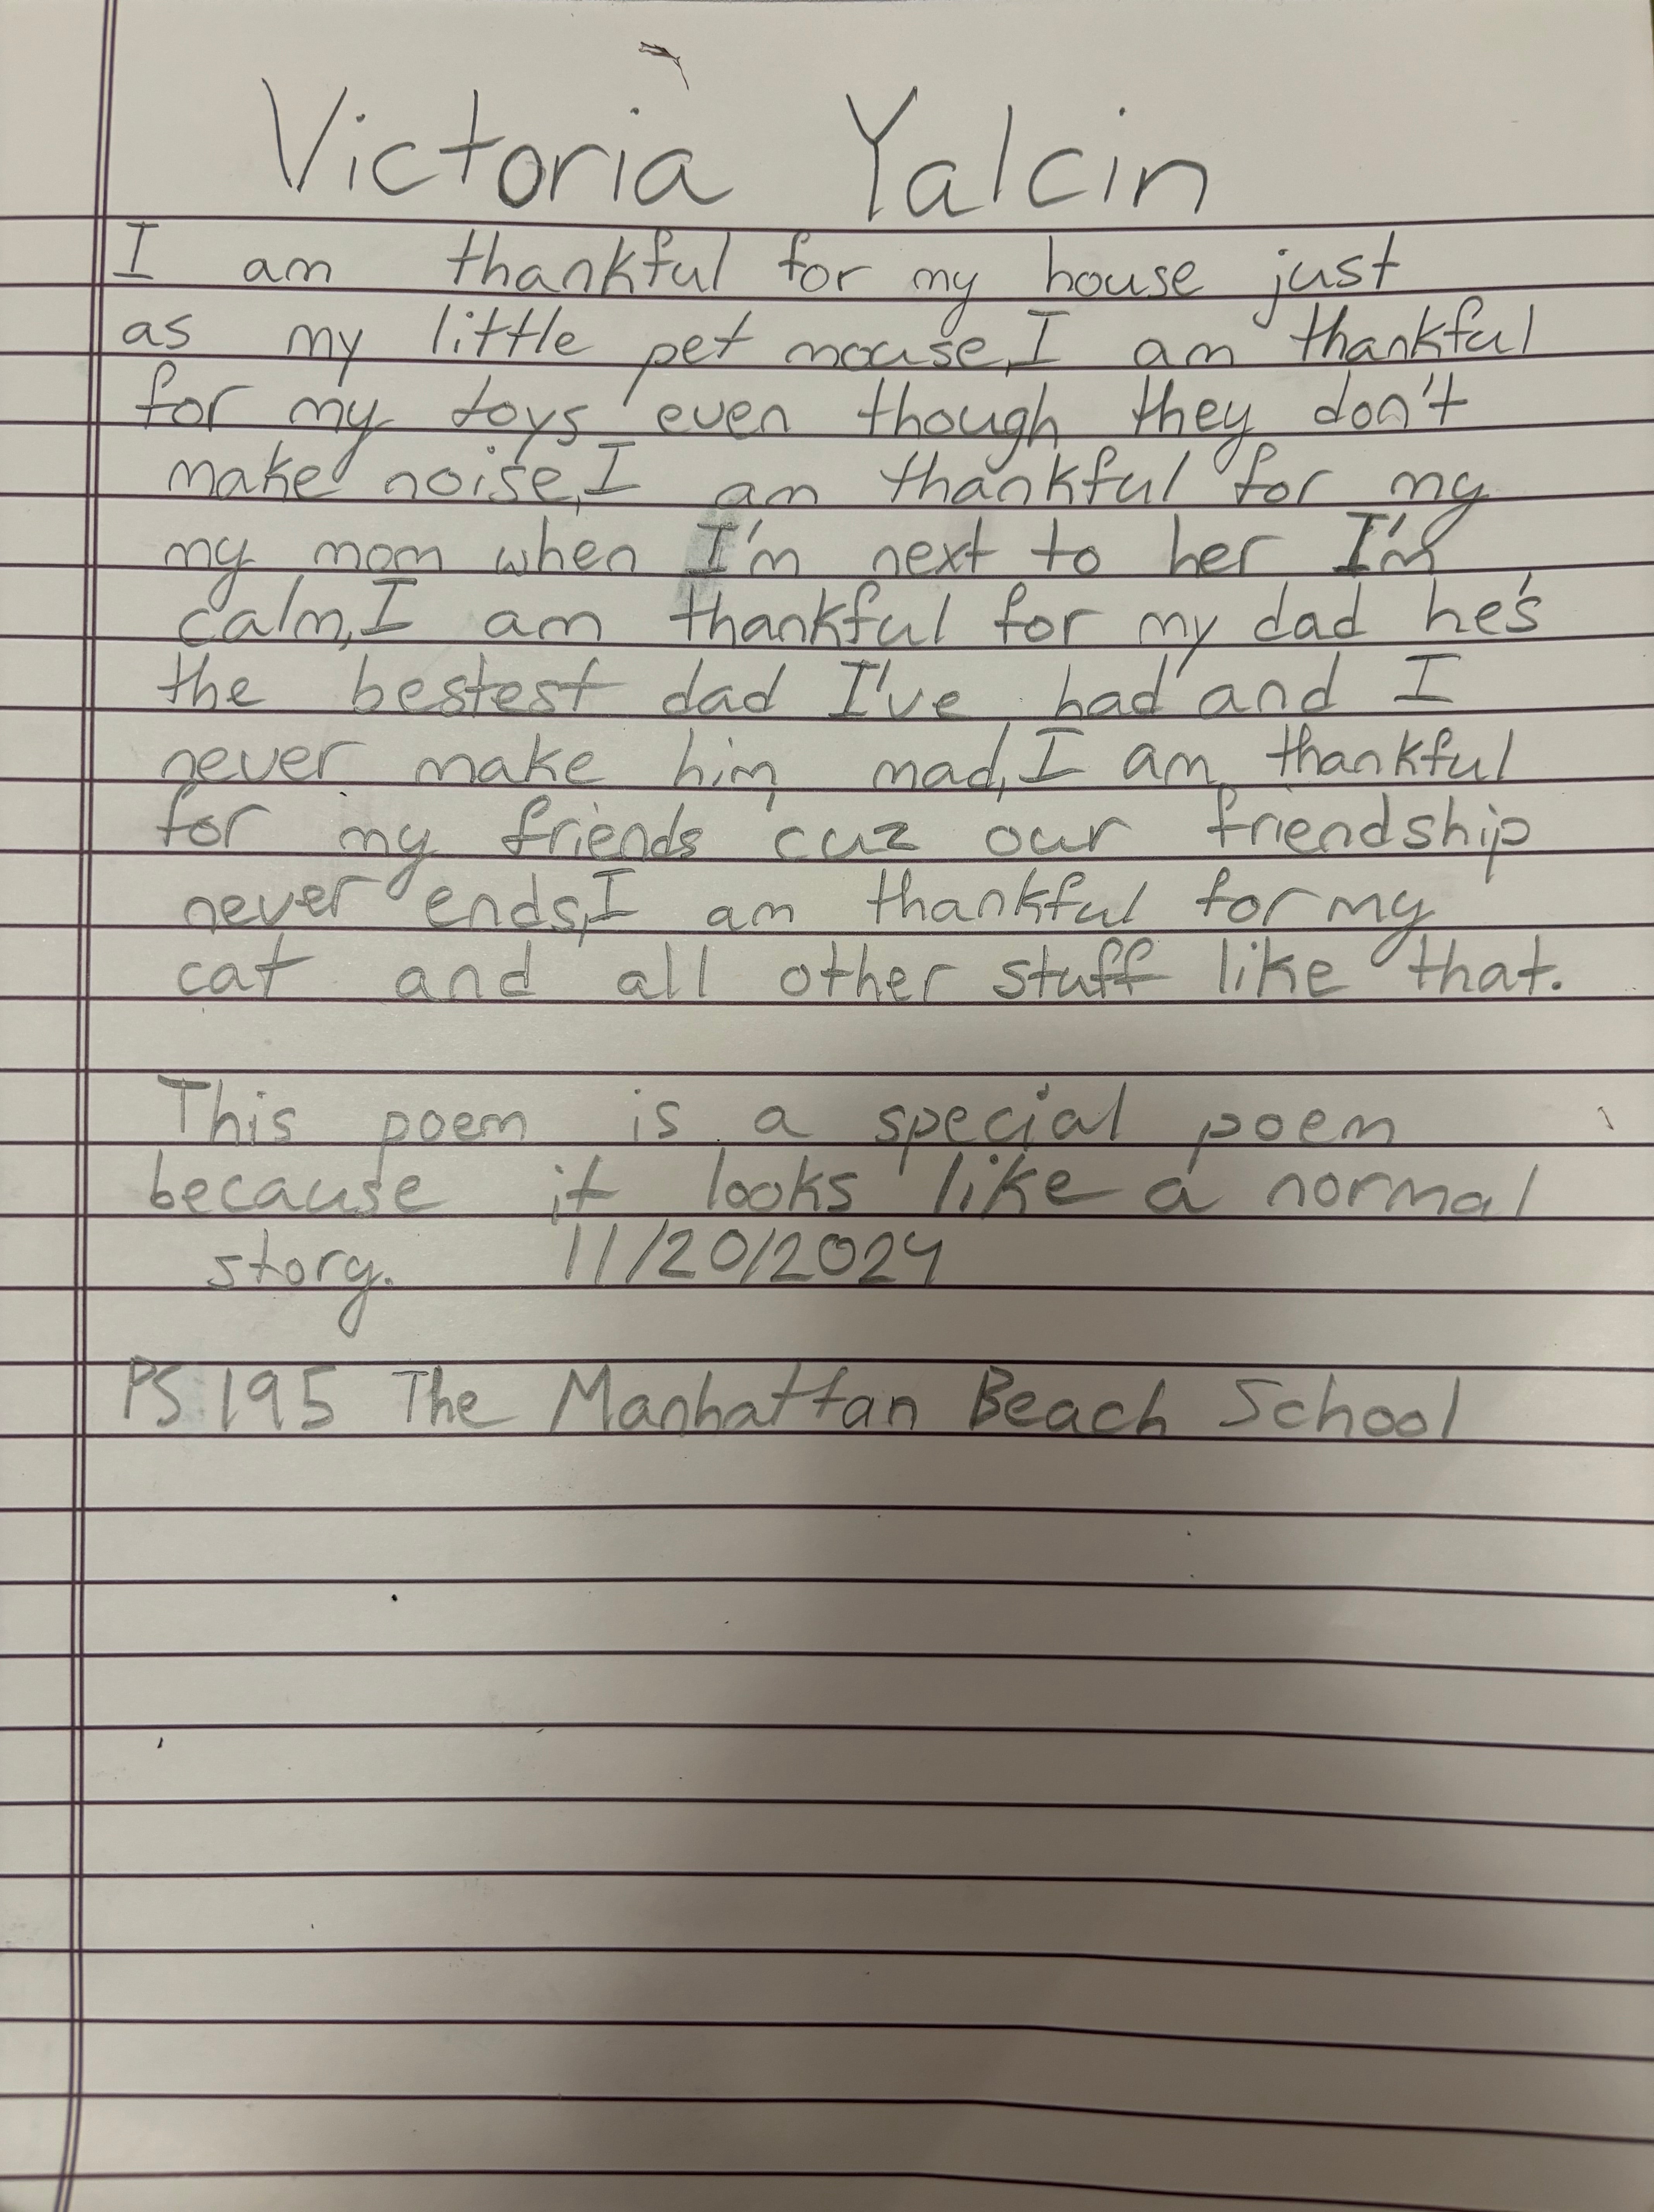 Victoria Yalcin
I am thankful for my house just
as my little pet mouse,I am thankful
for my toys even though they don't
make noise,I am thankful for my
my mom when I'm next to her I'm
calm,I am thankful for my dad he's
the bestest dad I've had and I
never make him mad,I am thankful
for my friends cuz our friendship
never ends,I am thankful for my
cat and all other stuff like that.
This poem is a special poem
because it looks like a normal
story. 11/20/2024
PS 195 The Manhattan Beach School